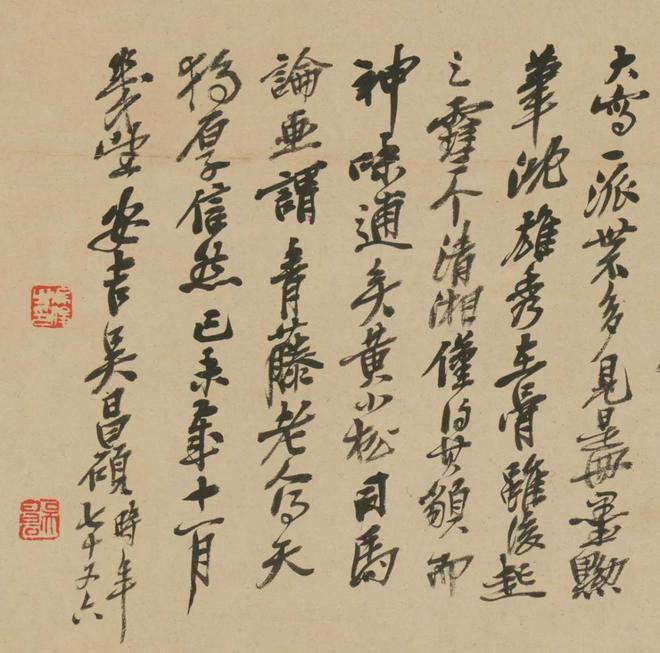 大寫一派世不多見是冊墨黝
筆沈雄秀在骨雖後起
之雪个清湘僅得其䫉而
神味逋矣黃小松司馬
論畫謂青藤老人得天
獨厚信然己未歲十一月
安吉吳昌碩時年七十又六